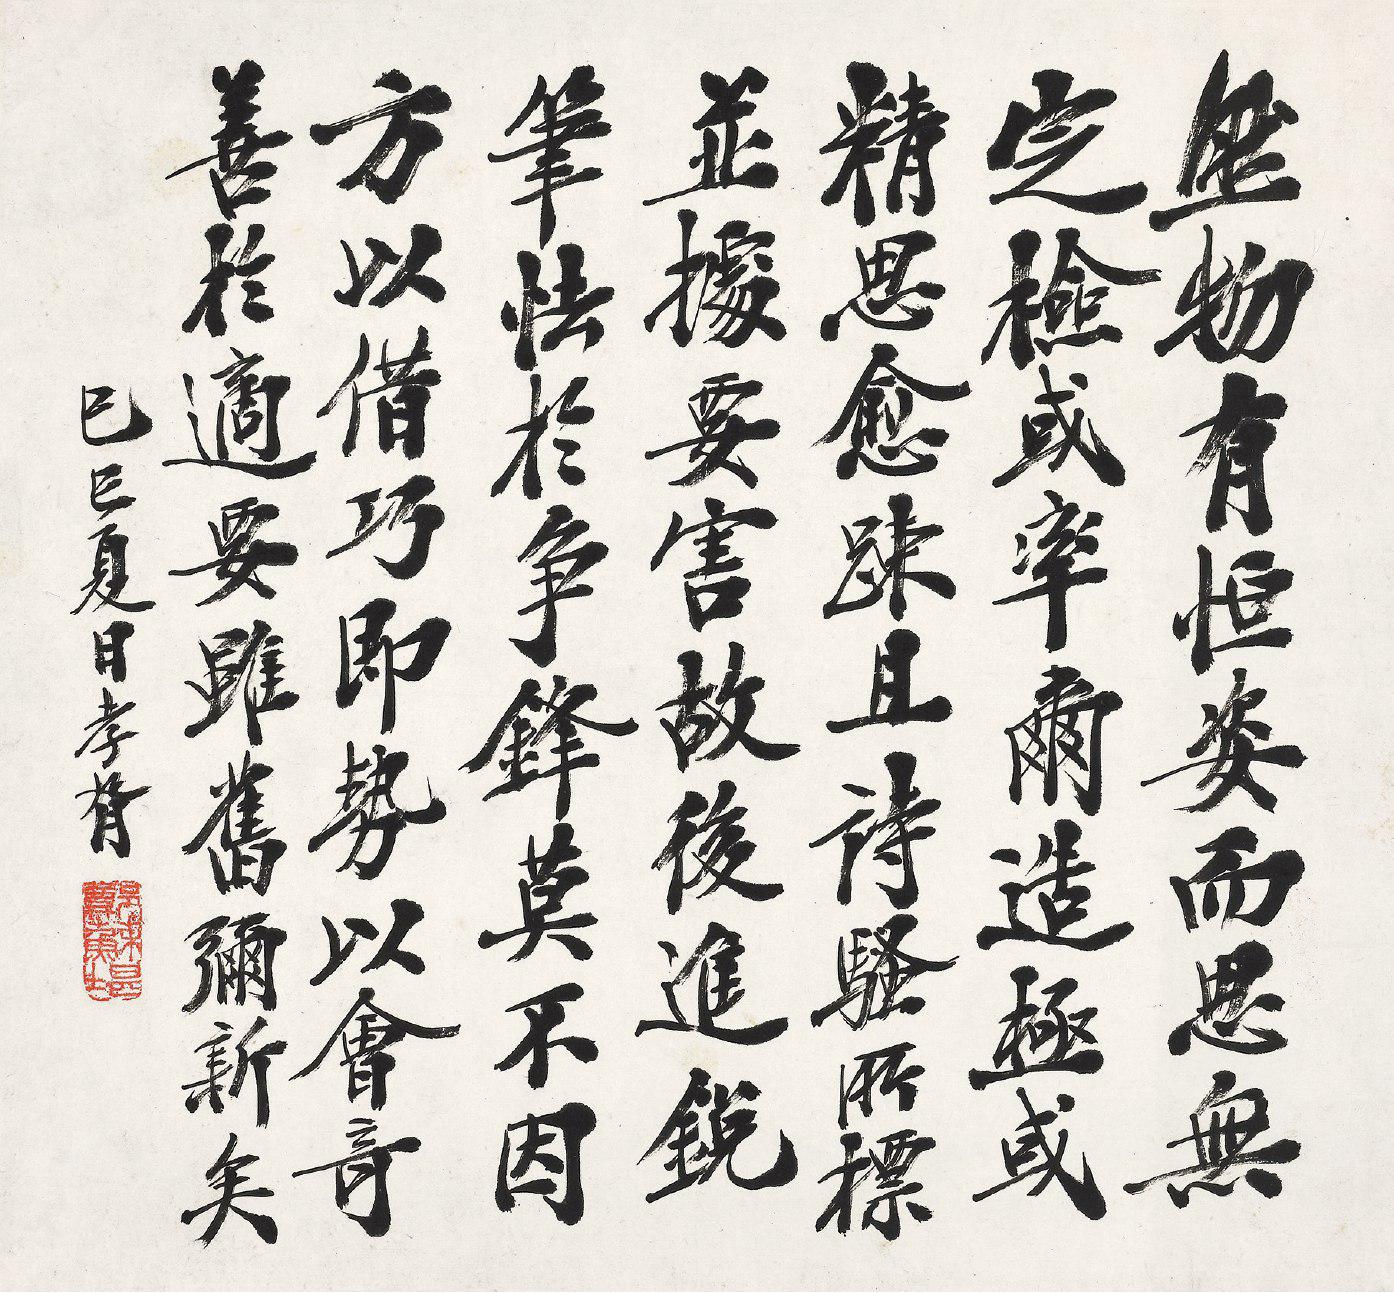 然物有恒姿而思無
定檢或率爾造極或
精思愈踈且詩騷所標
並據要害故後進銳
筆怯於爭鋒莫不因
方以借巧即勢以會奇
善於適要雖舊彌新矣
己巳夏日孝胥